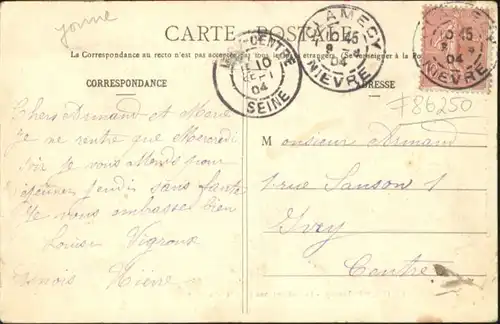 yonne
CARTE POSTALE
La Correspondance au recto n'est pas acceptée par tous les pays étrangers. (Se renseigner à la Poste)
CORRESPONDANCE
ADRESSE
CLAMECY
15 45
9 -1
04
NIEVRE
CENTRE
10
04
SEINE
15 45
04
NIEVRE
F86250
Chers Armand et Marie
Je ne rentre que Mercredi
soir je vous attends pour
déjeuner Jeudi sans faute
Je vous embrasse bien
Louise Vigroux
Nièvre
M
Monsieur Armand
1 rue Sanson 1
Ivry
Centre